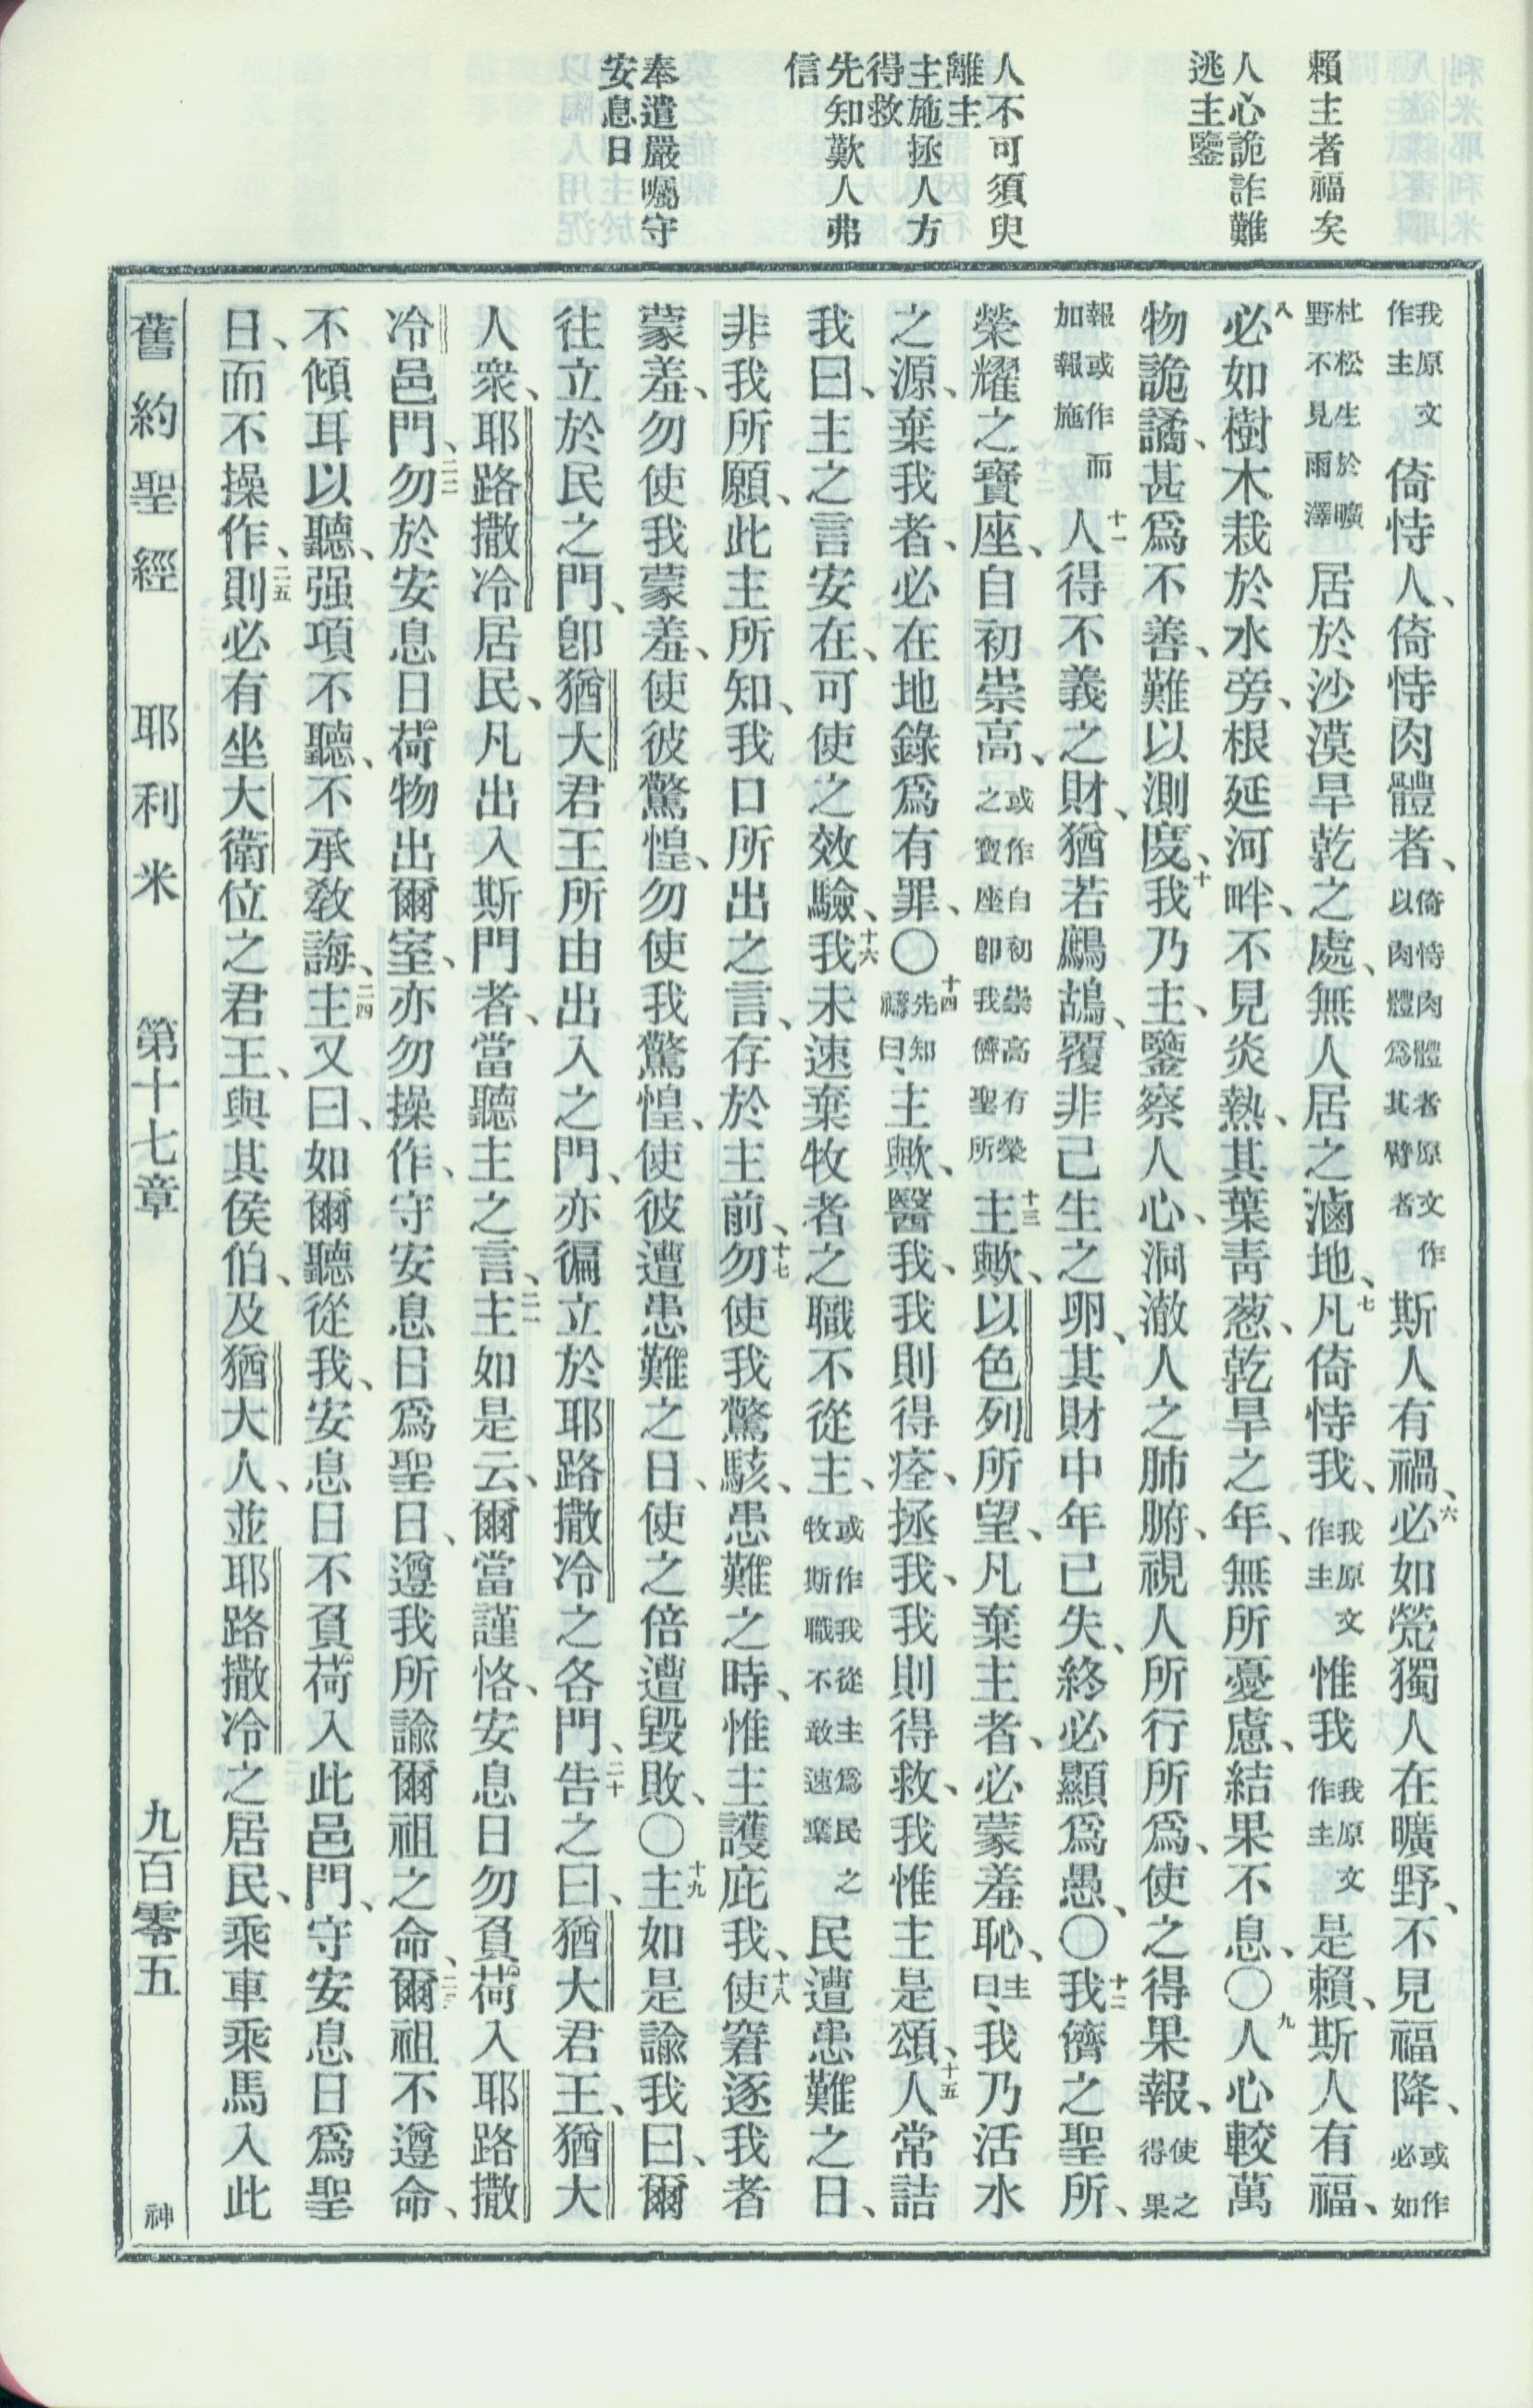 賴主者福矣
人心詭詐難
逃主鑒
人不可須臾
離主
主施拯人方
得救
先知歎人弗
信
奉遣嚴囑守
安息日
我原文作主倚恃人、倚恃肉體者、倚恃肉體者原文作以肉體爲其臂者斯人有禍、六必如煢獨人在曠野、不見福降、或作必如
杜松生於曠野不見雨澤居於沙漠旱乾之處、無人居之滷地、七凡倚恃我、我原文作主惟我我原文作主是賴、斯人有福、
八必如樹木栽於水旁、根延河畔、不見炎熱、其葉靑葱、乾旱之年、無所憂慮、結果不息、〇九人心較萬
物詭譎、甚爲不善、難以測度、十我乃主、鑒察人心、洞澈人之肺腑、視人所行所爲、使之得果報、使之得果
報或作而加報施十一人得不義之財、猶若鷓鴣、覆非己生之卵、其財中年已失、終必顯爲愚、〇十二我儕之聖所、
榮耀之寶座、自初崇高、或作自初崇高有榮之寶座卽我儕聖所十三主歟、以色列所望、凡棄主者、必蒙羞恥、主曰、我乃活水
之源、棄我者、必在地錄爲有罪、〇十四先知禱曰、主歟、醫我、我則得痊、拯我、我則得救、我惟主是頌、十五人常詰
我曰、主之言安在、可使之效驗、十六我未速棄牧者之職不從主、或作我從主爲民之牧斯職不敢速棄民遭患難之日、
非我所願、此主所知、我口所出之言、存於主前、十七勿使我驚駭、患難之時、惟主護庇我、十八使窘逐我者
蒙羞、勿使我蒙羞、使彼驚惶、勿使我驚惶、使彼遭患難之日、使之倍遭毀敗、〇十九主如是諭我曰、爾
往立於民之門、卽猶大君王所由出入之門、亦徧立於耶路撒冷之各門、二十告之曰、猶大君王、猶大
人衆、耶路撒冷居民、凡出入斯門者、當聽主之言、二一主如是云、爾當謹恪、安息日勿負荷入耶路撒
冷邑門、二二勿於安息日荷物出爾室、亦勿操作、守安息日爲聖日、遵我所諭爾祖之命、二三爾祖不遵命、
不傾耳以聽、强項不聽、不承敎誨、二四主又曰、如爾聽從我、安息日不負荷入此邑門、守安息日爲聖
日、而不操作、二五則必有坐大衛位之君王、與其侯伯、及猶大人、並耶路撒冷之居民、乘車乘馬入此
舊約聖經 耶利米 第十七章 九百零五 神